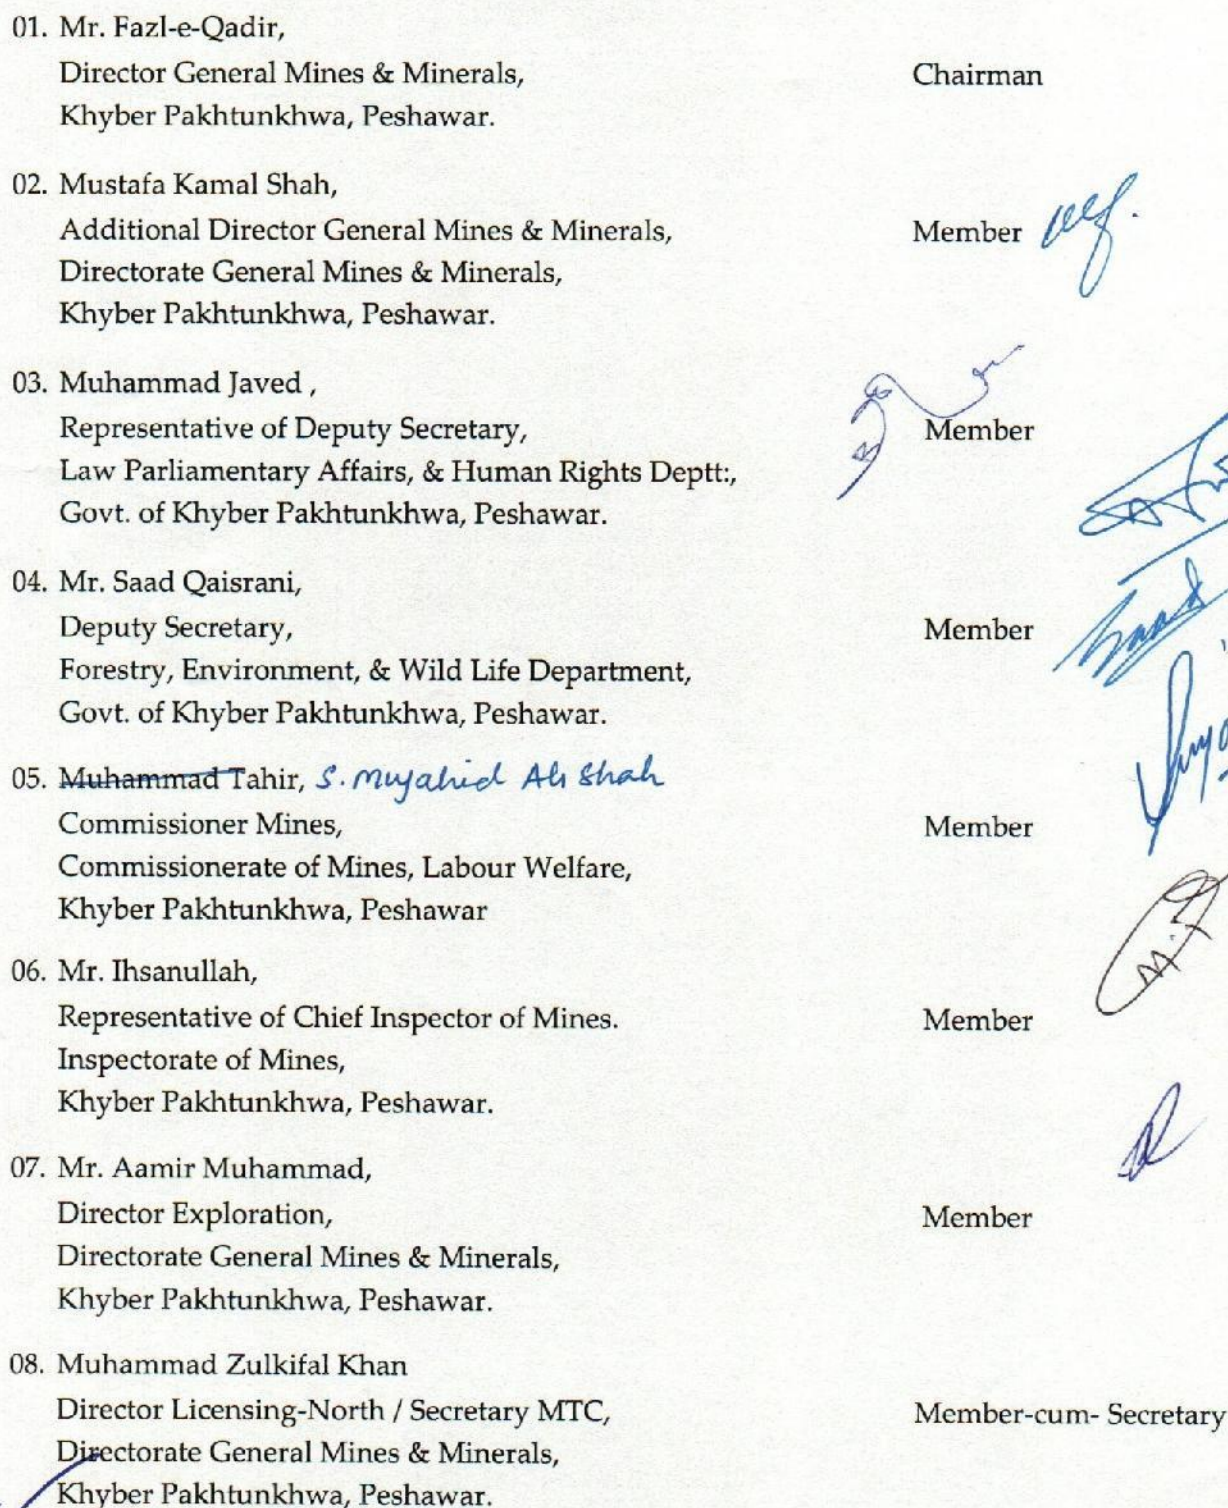 01. Mr. Fazl-e-Qadir,
Director General Mines & Minerals, Chairman
Khyber Pakhtunkhwa, Peshawar.
02. Mustafa Kamal Shah,
Additional Director General Mines & Minerals, Member
Directorate General Mines & Minerals,
Khyber Pakhtunkhwa, Peshawar.
03. Muhammad Javed ,
Representative of Deputy Secretary, Member
Law Parliamentary Affairs, & Human Rights Deptt:,
Govt. of Khyber Pakhtunkhwa, Peshawar.
04. Mr. Saad Qaisrani,
Deputy Secretary, Member
Forestry, Environment, & Wild Life Department,
Govt. of Khyber Pakhtunkhwa, Peshawar.
05. Muhammad Tahir, S. Mujahid Ali Shah
Commissioner Mines, Member
Commissionerate of Mines, Labour Welfare,
Khyber Pakhtunkhwa, Peshawar
06. Mr. Ihsanullah,
Representative of Chief Inspector of Mines. Member
Inspectorate of Mines,
Khyber Pakhtunkhwa, Peshawar.
07. Mr. Aamir Muhammad,
Director Exploration, Member
Directorate General Mines & Minerals,
Khyber Pakhtunkhwa, Peshawar.
08. Muhammad Zulkifal Khan
Director Licensing-North / Secretary MTC, Member-cum- Secretary
Directorate General Mines & Minerals,
Khyber Pakhtunkhwa, Peshawar.